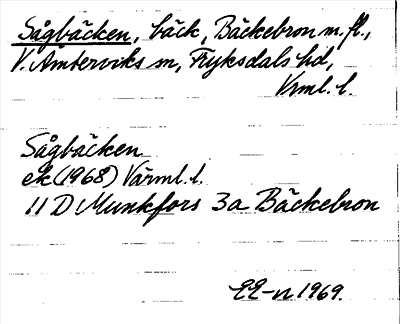 Sågbäcken, bäck, Bäckebron m.fl.,
V. Ämterviks sn, Fryksdals hd,
Vrml. l.
Sågbäcken
ek (1968) Värml. l.
11 D Munkfors 3a Bäckebron
1969.